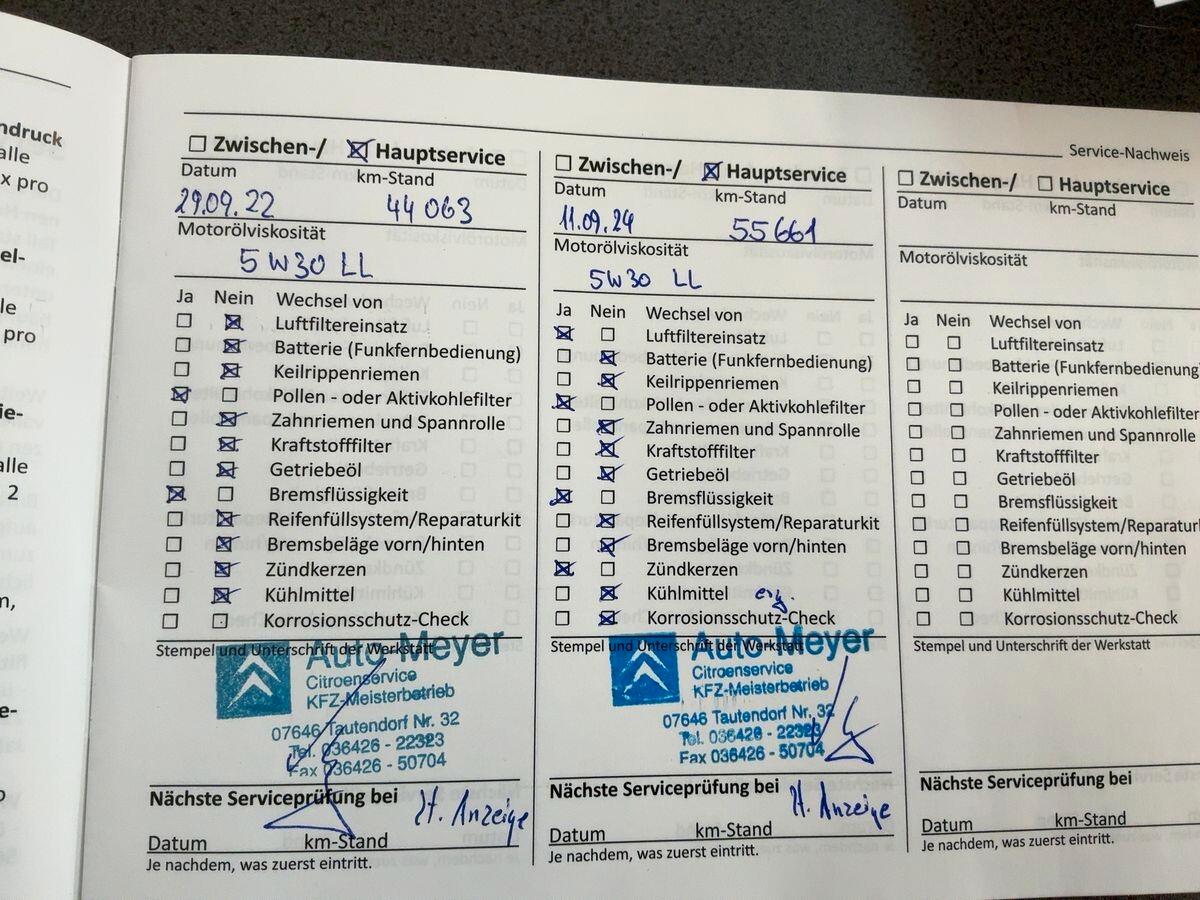 ndruck
alle
x pro
el-
le
pro
ie-
alle
2
m,
e-
Service-Nachweis
☐ Zwischen-/ ☒ Hauptservice
Datum km-Stand
29.09.22 44 063
Motorölviskosität
5W30 LL
Ja Nein Wechsel von
☐ ☒ Luftfiltereinsatz
☐ ☒ Batterie (Funkfernbedienung)
☐ ☒ Keilrippenriemen
☒ ☐ Pollen - oder Aktivkohlefilter
☐ ☒ Zahnriemen und Spannrolle
☐ ☒ Kraftstofffilter
☐ ☒ Getriebeöl
☒ ☐ Bremsflüssigkeit
☐ ☒ Reifenfüllsystem/Reparaturkit
☐ ☒ Bremsbeläge vorn/hinten
☐ ☒ Zündkerzen
☐ ☒ Kühlmittel
☐ ☐ Korrosionsschutz-Check
Stempel und Unterschrift der Werkstatt
Auto-Meyer
Citroenservice
KFZ-Meisterbetrieb
07646 Tautendorf Nr. 32
Tel. 036426 - 22323
Fax 036426 - 50704
Nächste Serviceprüfung bei
lt. Anzeige
Datum km-Stand
Je nachdem, was zuerst eintritt.
☐ Zwischen-/ ☒ Hauptservice
Datum km-Stand
11.09.24 55661
Motorölviskosität
5W30 LL
Ja Nein Wechsel von
☒ ☐ Luftfiltereinsatz
☐ ☒ Batterie (Funkfernbedienung)
☐ ☒ Keilrippenriemen
☒ ☐ Pollen - oder Aktivkohlefilter
☐ ☒ Zahnriemen und Spannrolle
☐ ☒ Kraftstofffilter
☐ ☒ Getriebeöl
☒ ☐ Bremsflüssigkeit
☐ ☒ Reifenfüllsystem/Reparaturkit
☐ ☒ Bremsbeläge vorn/hinten
☒ ☐ Zündkerzen
☐ ☒ Kühlmittel
☐ ☒ Korrosionsschutz-Check
Stempel und Unterschrift der Werkstatt
Auto-Meyer
Citroenservice
KFZ-Meisterbetrieb
07646 Tautendorf Nr. 32
Tel. 036426 - 22323
Fax 036426 - 50704
Nächste Serviceprüfung bei
lt. Anzeige
Datum km-Stand
Je nachdem, was zuerst eintritt.
☐ Zwischen-/ ☐ Hauptservice
Datum km-Stand
Motorölviskosität
Ja Nein Wechsel von
☐ ☐ Luftfiltereinsatz
☐ ☐ Batterie (Funkfernbedienung
☐ ☐ Keilrippenriemen
☐ ☐ Pollen - oder Aktivkohlefilter
☐ ☐ Zahnriemen und Spannrolle
☐ ☐ Kraftstofffilter
☐ ☐ Getriebeöl
☐ ☐ Bremsflüssigkeit
☐ ☐ Reifenfüllsystem/Reparaturk
☐ ☐ Bremsbeläge vorn/hinten
☐ ☐ Zündkerzen
☐ ☐ Kühlmittel
☐ ☐ Korrosionsschutz-Check
Stempel und Unterschrift der Werkstatt
Nächste Serviceprüfung bei
Datum km-Stand
Je nachdem, was zuerst eintritt.